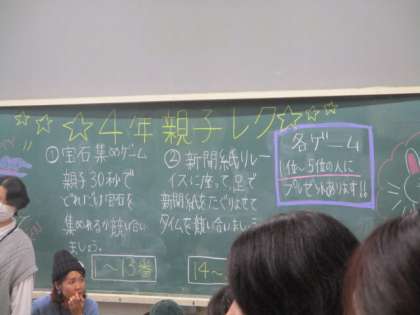 ☆☆☆4年 親子レク☆☆☆
① 宝石集めゲーム
親子30秒で
どれだけ宝石を
集めれるか競い合い
ましょう。
1〜13番
② 新聞紙リレー
イスに座って、足で
新聞紙をたぐりよせて
タイムを競い合いましょう
14〜
各ゲーム
1位〜5位の人に
プレゼントあります!!